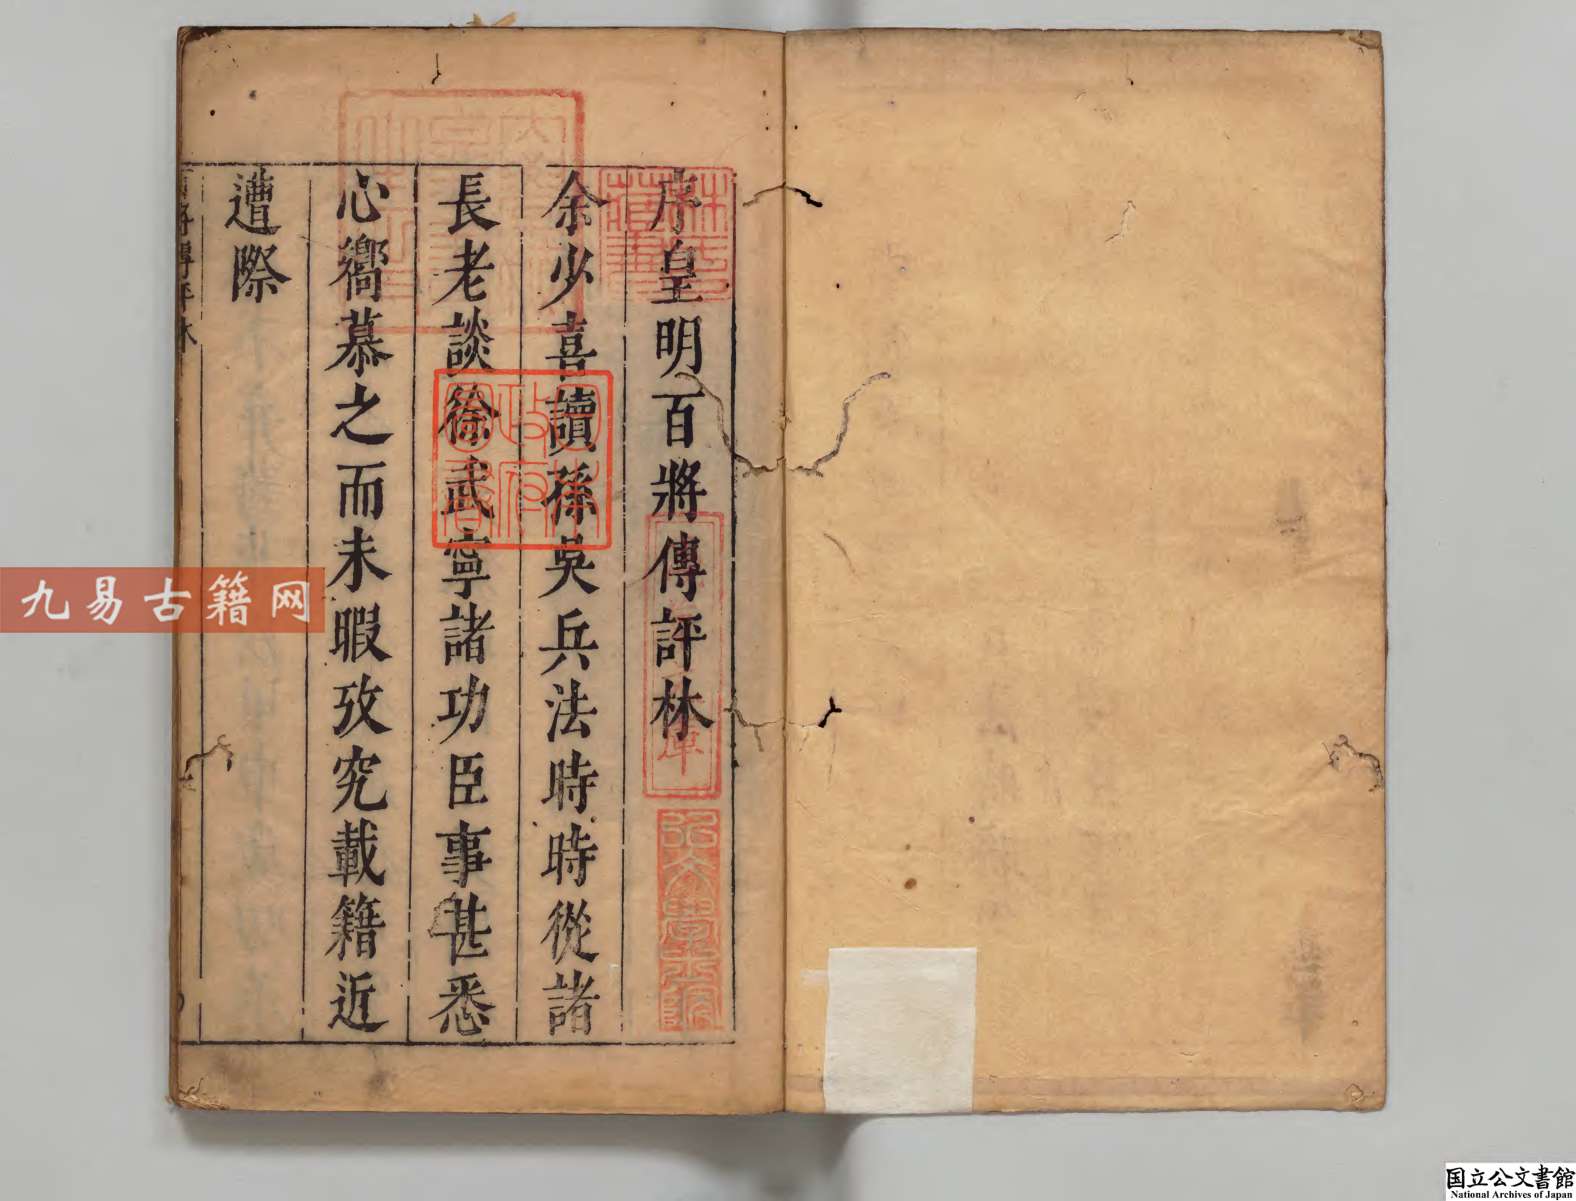 序皇明百將傳評林
余少喜讀孫吳兵法時時從諸
長老談徐武寧諸功臣事甚悉
心嚮慕之而未暇攷究載籍近
遭際
百將傳評林
日本政府圖書
林氏藏書
弘文學士館
九易古籍网
国立公文書館
National Archives of Japan